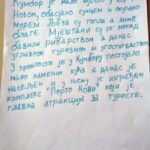 Кумбор је мало мјесто у Херцег
Новом, обасјано сунцем и окупано
морем. Љета су топла а зиме
благе. Мјештани су се некад
бавили рибарством а данас
углавном туризмом и угоститељством
У прошлости је у Кумбору постојало
мало камених кућа а данас је
насељен и у њему је изграђен
комплекс "Порто Нови" који је
главна атракција за туристе.